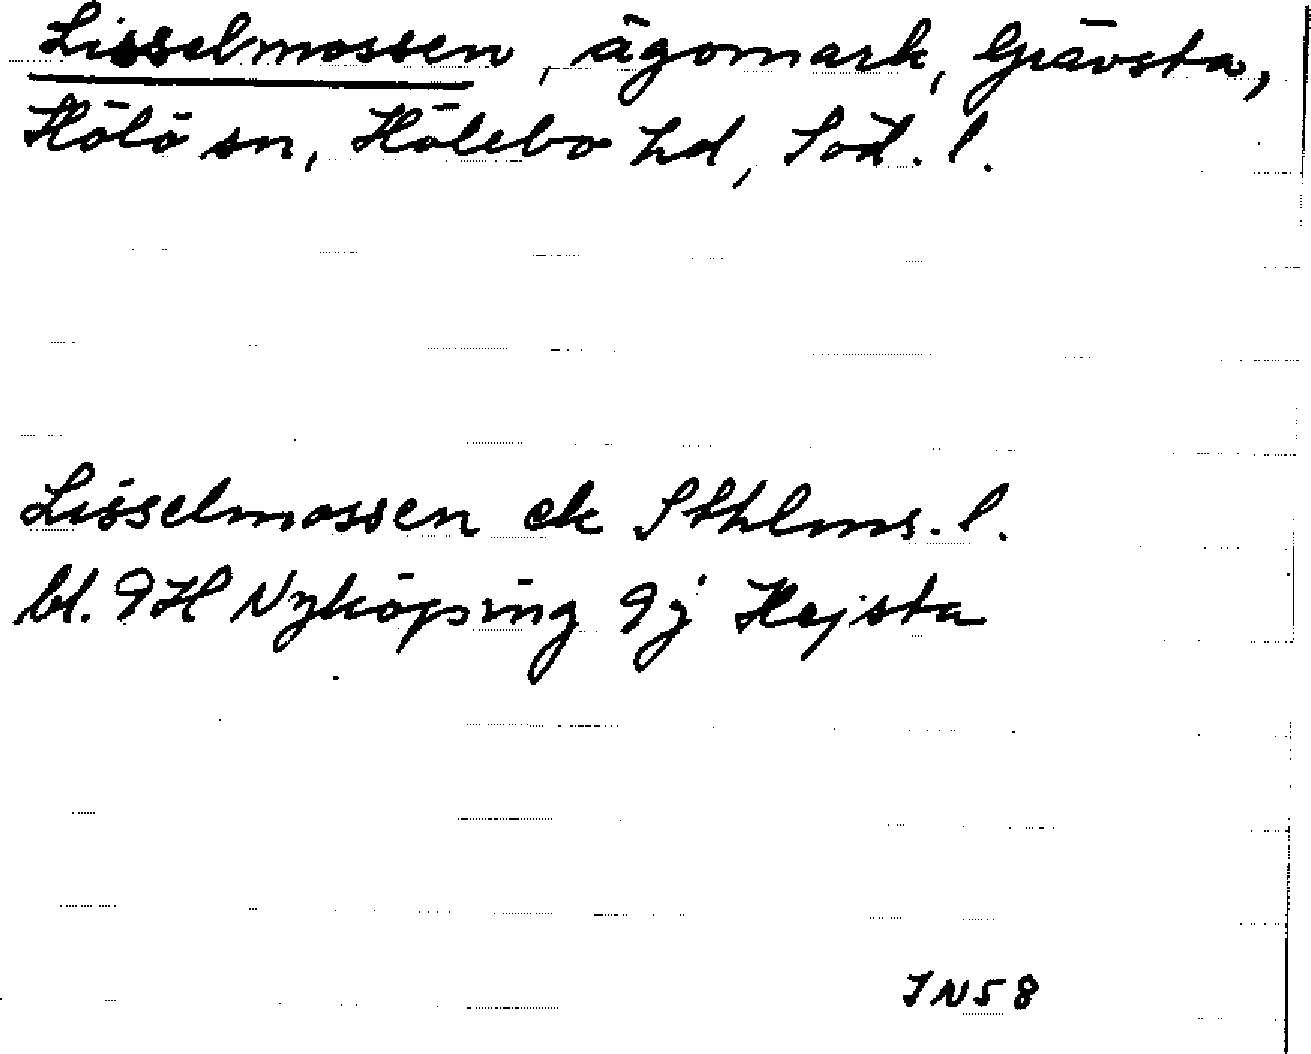 Lisselmossen, ägomark, Grävsta,
Hölö sn, Hölebo hd, Söd. l.
Lisselmossen ek Sthlms. l.
bl. 9H Nyköping 9j Hejsta
JN58